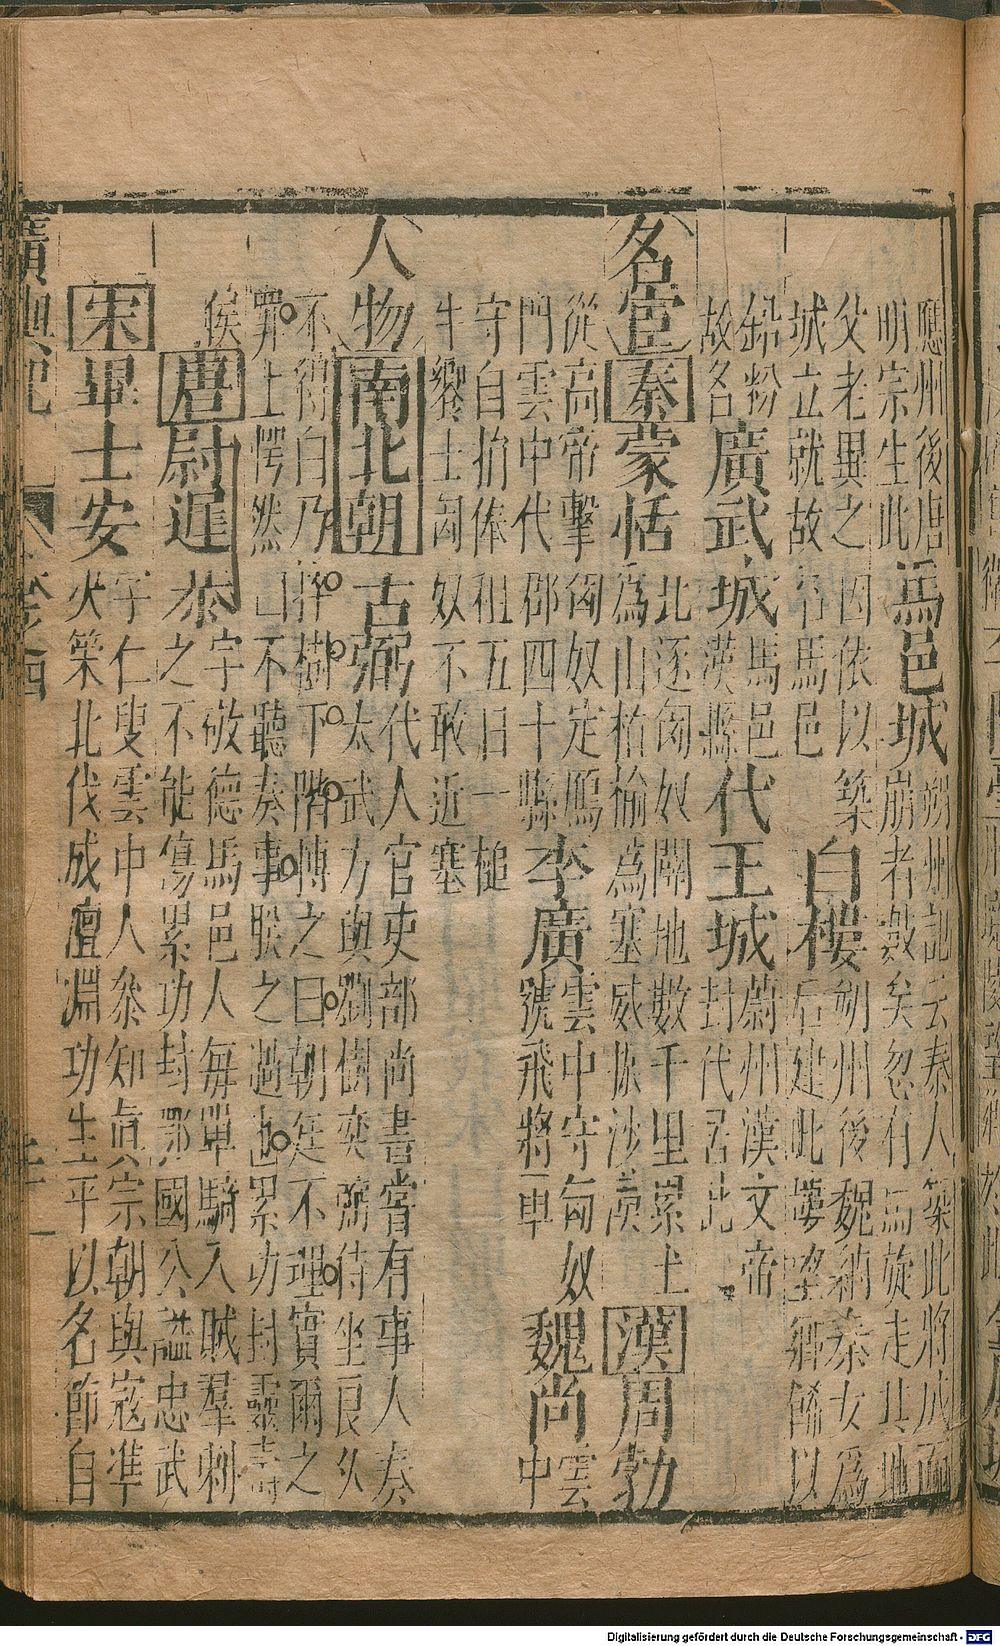 應州後唐
明宗生此
馬邑城
朔州記云秦人築此將成而
崩者數矣忽有馬旋走其地
父老異之因依以築
城立就故名馬邑
白樓
朔州後魏納秦女爲
后建此樓望鄉餙以
鉛粉
故名
廣武城
馬邑
漢縣
代王城
蔚州漢文帝
封代居此
名宦
秦
蒙恬
北逐匈奴闢地數千里累土
爲山植榆爲塞威振沙漠
漢
周勃
從高帝擊匈奴定鴈
門雲中代郡四十縣
李廣
雲中守匈奴
號飛將軍
魏尚
雲
中
守自捐俸租五日一槌
牛饗士匈奴不敢近塞
人物
南北朝
古弼
代人官吏部尚書嘗有事人奏
太武方與劉樹奕弼侍坐良久
不得白乃捽樹下階慱之曰朝廷不理實爾之
罪上愕然曰不聽奏事朕之過也累功封靈壽
侯
唐
尉遲恭
字敬德馬邑人毎單騎入賊羣刺
之不能傷累功封鄂國公謚忠武
宋
畢士安
字仁叟雲中人叅知眞宗朝與寇準
火築北伐成澶淵功生平以名節自
廣輿記
卷之四
Digitalisierung gefördert durch die Deutsche Forschungsgemeinschaft - DFG